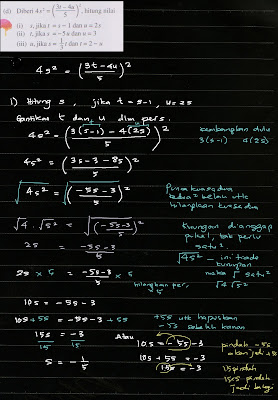 (d) Diberi 4s² = (3t − 4u / 5)², hitung nilai
(i) s, jika t = s − 1 dan u = 2s
(ii) t, jika s = −5u dan u = 3
(iii) u, jika s = ½t dan t = 2 − u
4s² = (3t − 4u / 5)²
1) Hitung s, jika t = s−1, u = 2s
Gantikan t dan u dlm pers.
4s² = (3(s−1) − 4(2s) / 5)²
kembangkan dulu
3(s−1) 4(2s)
4s² = (3s − 3 − 8s / 5)²
√4s² = √(−5s − 3 / 5)²
Punca kuasa dua
kedua² belah utk
hilangkan kuasa dua
√4 · √s² = √(−5s − 3 / 5)²
kurungan dianggap
pukal, tak perlu
satu².
2s = −5s − 3 / 5
√4s² – ini tiada
kurungan
maka √ satu²
√4 √s²
2s × 5 = −5s − 3 / 5 × 5
hilangkan per
5
10s = −5s − 3
10s + 5s = −5s − 3 + 5s
+5s utk hapuskan
−5s sebelah kanan
15s / 15 = −3 / 15
Atau
10s = −5s − 3
pindah −5s
akan jadi +5s
10s + 5s = −3
s = −1/5
15s = −3
15 pindah
jadi bahagi